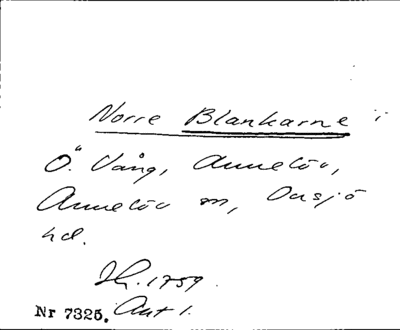 Norre Blankarne i
Ö. Vång, Annelöv,
Annelöv sn, Onsjö
hd.
Sk. 1759.
Nr 7325. Akt 1.